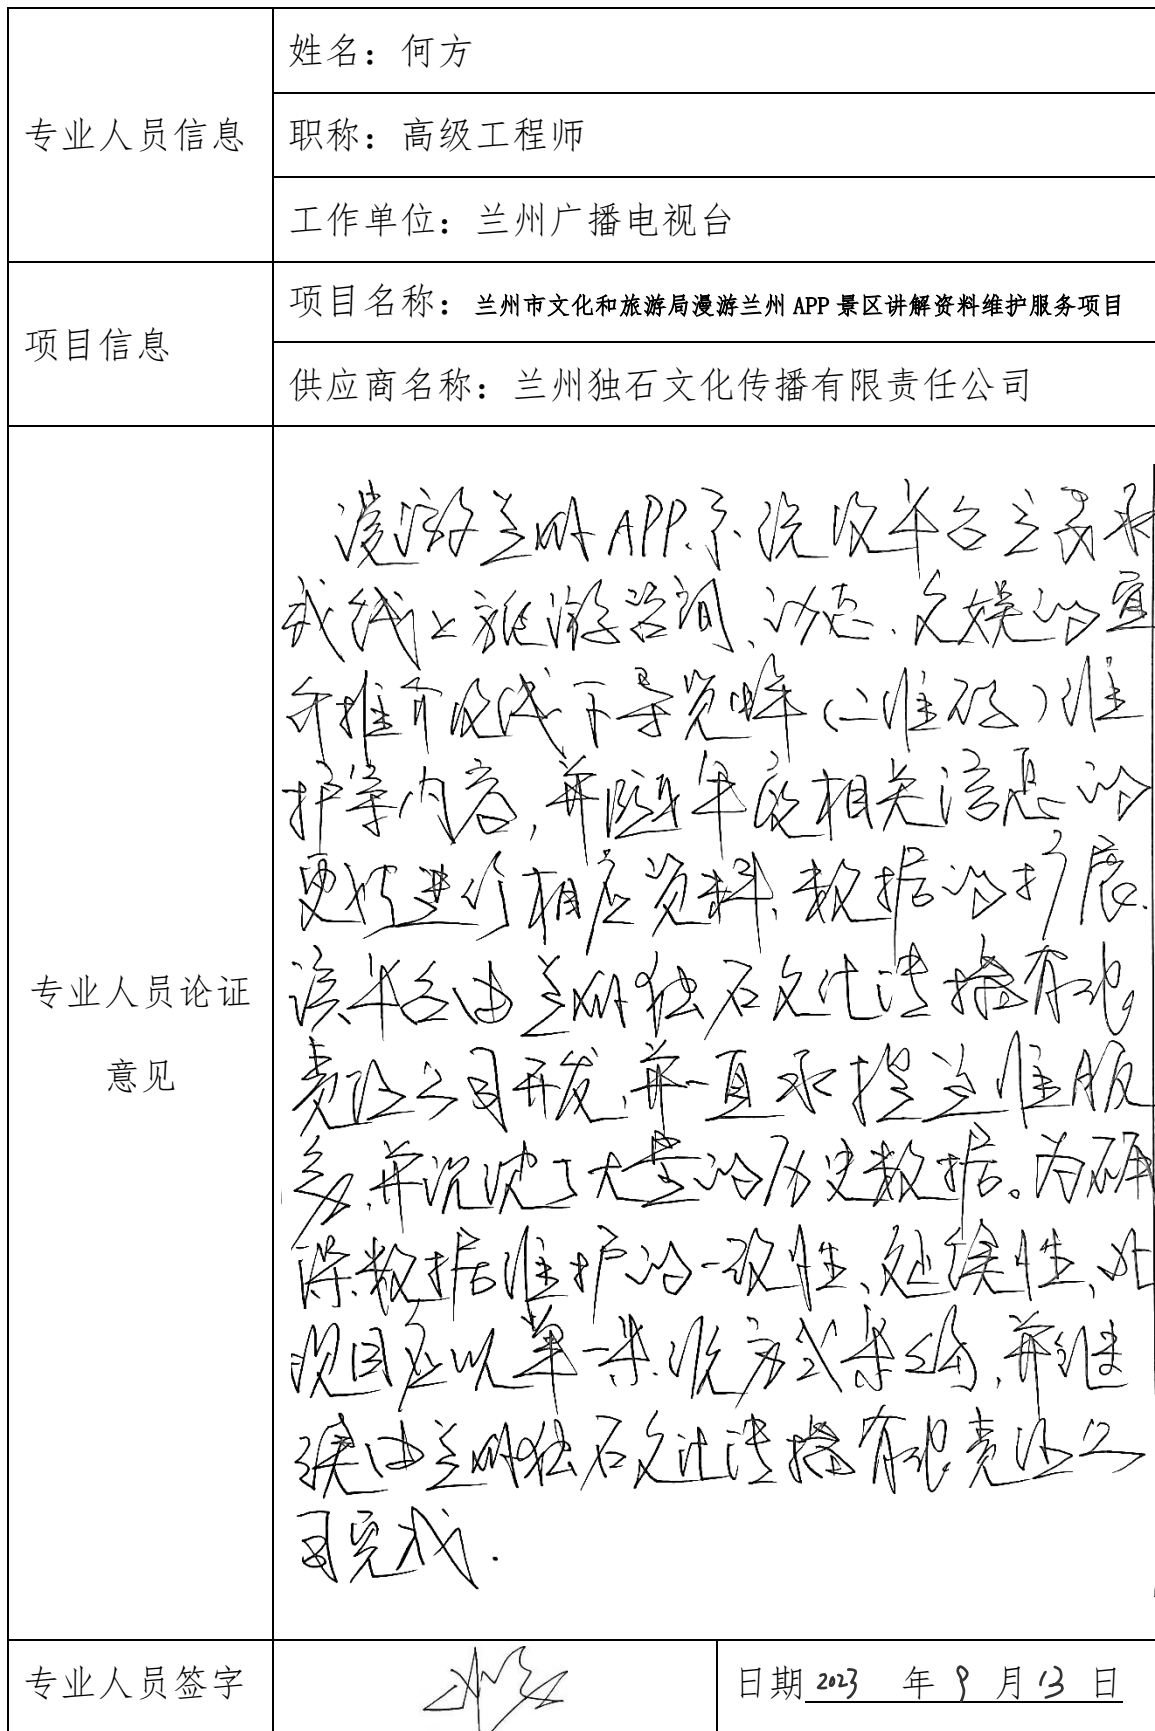 姓名：何方
专业人员信息
职称：高级工程师
工作单位：兰州广播电视台
项目信息
项目名称：兰州市文化和旅游局漫游兰州 APP 景区讲解资料维护服务项目
供应商名称：兰州独石文化传播有限责任公司
专业人员论证
意见
漫游兰州APP系统及平台主要承
载线上旅游咨询、动态、文娱的宣
介推介及线下导览牌（二维码）维
护等内容，并随年度相关信息的
更新进行相应资料、数据的扩展.
该平台由兰州独石文化传播有限
责任公司开发，并一直承担运维服
务，并沉淀了大量的历史数据。为确
保数据维护的一致性、延续性，此
项目应以单一来源方式采购，并继
续由兰州独石文化传播有限责任公
司完成.
专业人员签字
日期 2023 年 9 月 13 日